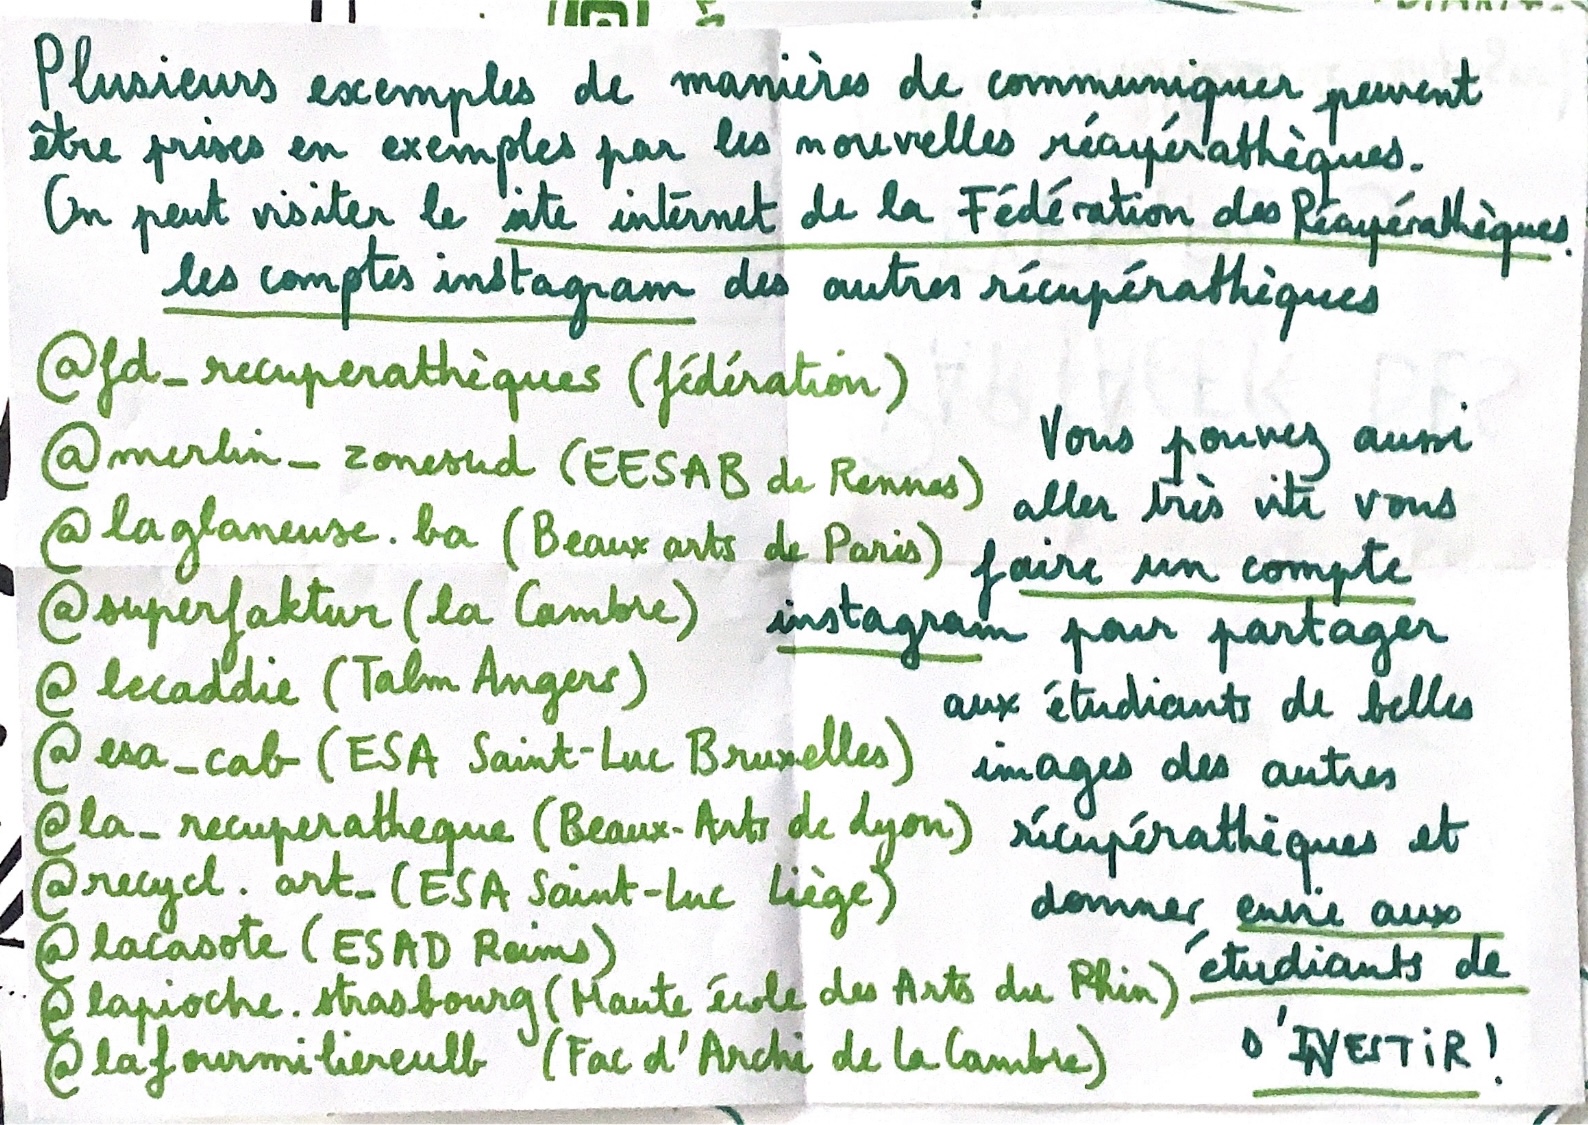 Plusieurs exemples de manières de communiquer peuvent
être prises en exemples par les nouvelles récupérathèques.
On peut visiter le site internet de la Fédération des Récupérathèques.
les comptes instagram des autres récupérathèques
@fd_recuperathèques (fédération)
@merlin_zonesud (EESAB de Rennes)
@laglaneuse.ba (Beaux arts de Paris)
@superfaktur (la Cambre)
@lecaddie (Talm Angers)
@esa_cab (ESA Saint-Luc Bruxelles)
@la_recuperatheque (Beaux-Arts de Lyon)
@recycl.art_ (ESA Saint-Luc Liège)
@lacasote (ESAD Reims)
@lapioche.strasbourg (Haute école des Arts du Rhin)
@lafourmiliereulb (Fac d'Archi de la Cambre)
Vous pouvez aussi
aller très vite vous
faire un compte
instagram pour partager
aux étudiants de belles
images des autres
récupérathèques et
donner envie aux
étudiants de
D'INVESTIR !